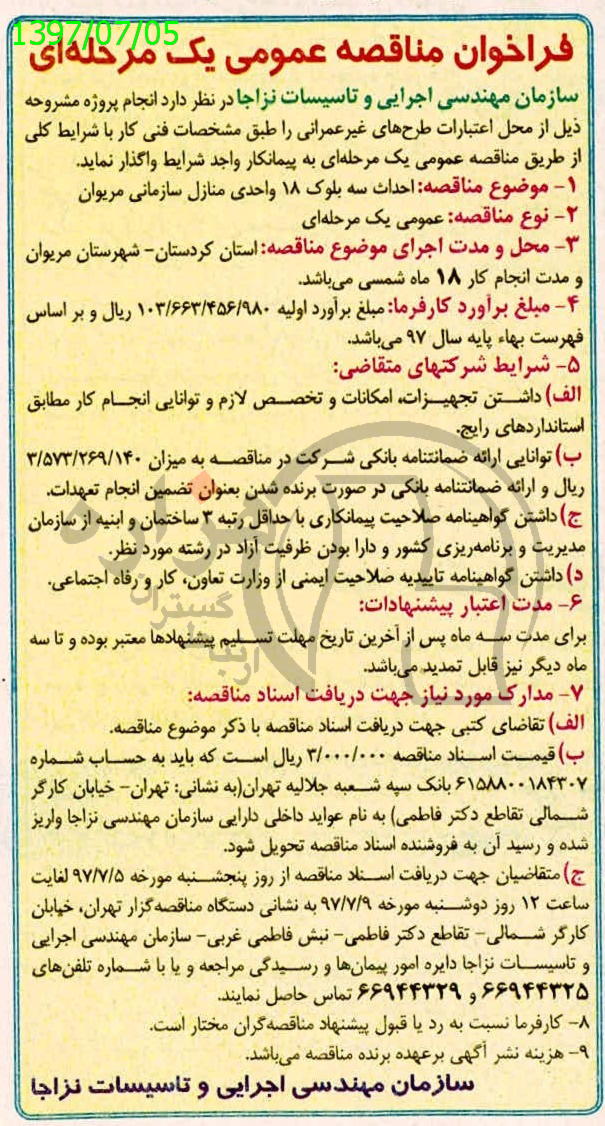 1397/07/05
فراخوان مناقصه عمومی یک مرحله‌ای
سازمان مهندسی اجرایی و تاسیسات نزاجا در نظر دارد انجام پروژه مشروحه
ذیل از محل اعتبارات طرح‌های غیرعمرانی را طبق مشخصات فنی کار با شرایط کلی
از طریق مناقصه عمومی یک مرحله‌ای به پیمانکار واجد شرایط واگذار نماید.
۱- موضوع مناقصه: احداث سه بلوک ۱۸ واحدی منازل سازمانی مریوان
۲- نوع مناقصه: عمومی یک مرحله‌ای
۳- محل و مدت اجرای موضوع مناقصه: استان کردستان- شهرستان مریوان
و مدت انجام کار ۱۸ ماه شمسی می‌باشد.
۴- مبلغ برآورد کارفرما: مبلغ برآورد اولیه ۱۰۳/۶۶۳/۴۵۶/۹۸۰ ریال و بر اساس
فهرست بهاء پایه سال ۹۷ می‌باشد.
۵- شرایط شرکتهای متقاضی:
الف) داشتن تجهیزات، امکانات و تخصص لازم و توانایی انجام کار مطابق
استانداردهای رایج.
ب) توانایی ارائه ضمانتنامه بانکی شرکت در مناقصه به میزان ۳/۵۷۳/۲۶۹/۱۴۰
ریال و ارائه ضمانتنامه بانکی در صورت برنده شدن بعنوان تضمین انجام تعهدات.
ج) داشتن گواهینامه صلاحیت پیمانکاری با حداقل رتبه ۳ ساختمان و ابنیه از سازمان
مدیریت و برنامه‌ریزی کشور و دارا بودن ظرفیت آزاد در رشته مورد نظر.
د) داشتن گواهینامه تاییدیه صلاحیت ایمنی از وزارت تعاون، کار و رفاه اجتماعی.
۶- مدت اعتبار پیشنهادات:
برای مدت سه ماه پس از آخرین تاریخ مهلت تسلیم پیشنهادها معتبر بوده و تا سه
ماه دیگر نیز قابل تمدید می‌باشد.
۷- مدارک مورد نیاز جهت دریافت اسناد مناقصه:
الف) تقاضای کتبی جهت دریافت اسناد مناقصه با ذکر موضوع مناقصه.
ب) قیمت اسناد مناقصه ۳/۰۰۰/۰۰۰ ریال است که باید به حساب شماره
۶۱۵۸۸۰۰۱۸۴۳۰۷ بانک سپه شعبه جلالیه تهران(به نشانی: تهران- خیابان کارگر
شمالی تقاطع دکتر فاطمی) به نام عواید داخلی دارایی سازمان مهندسی نزاجا واریز
شده و رسید آن به فروشنده اسناد مناقصه تحویل شود.
ج) متقاضیان جهت دریافت اسناد مناقصه از روز پنجشنبه مورخه ۹۷/۷/۵ لغایت
ساعت ۱۲ روز دوشنبه مورخه ۹۷/۷/۹ به نشانی دستگاه مناقصه‌گزار تهران، خیابان
کارگر شمالی- تقاطع دکتر فاطمی- نبش فاطمی غربی- سازمان مهندسی اجرایی
و تاسیسات نزاجا دایره امور پیمان‌ها و رسیدگی مراجعه و یا با شماره تلفن‌های
۶۶۹۴۴۳۲۵ و ۶۶۹۴۴۳۲۹ تماس حاصل نمایند.
۸- کارفرما نسبت به رد یا قبول پیشنهاد مناقصه‌گران مختار است.
۹- هزینه نشر آگهی برعهده برنده مناقصه می‌باشد.
سازمان مهندسی اجرایی و تاسیسات نزاجا